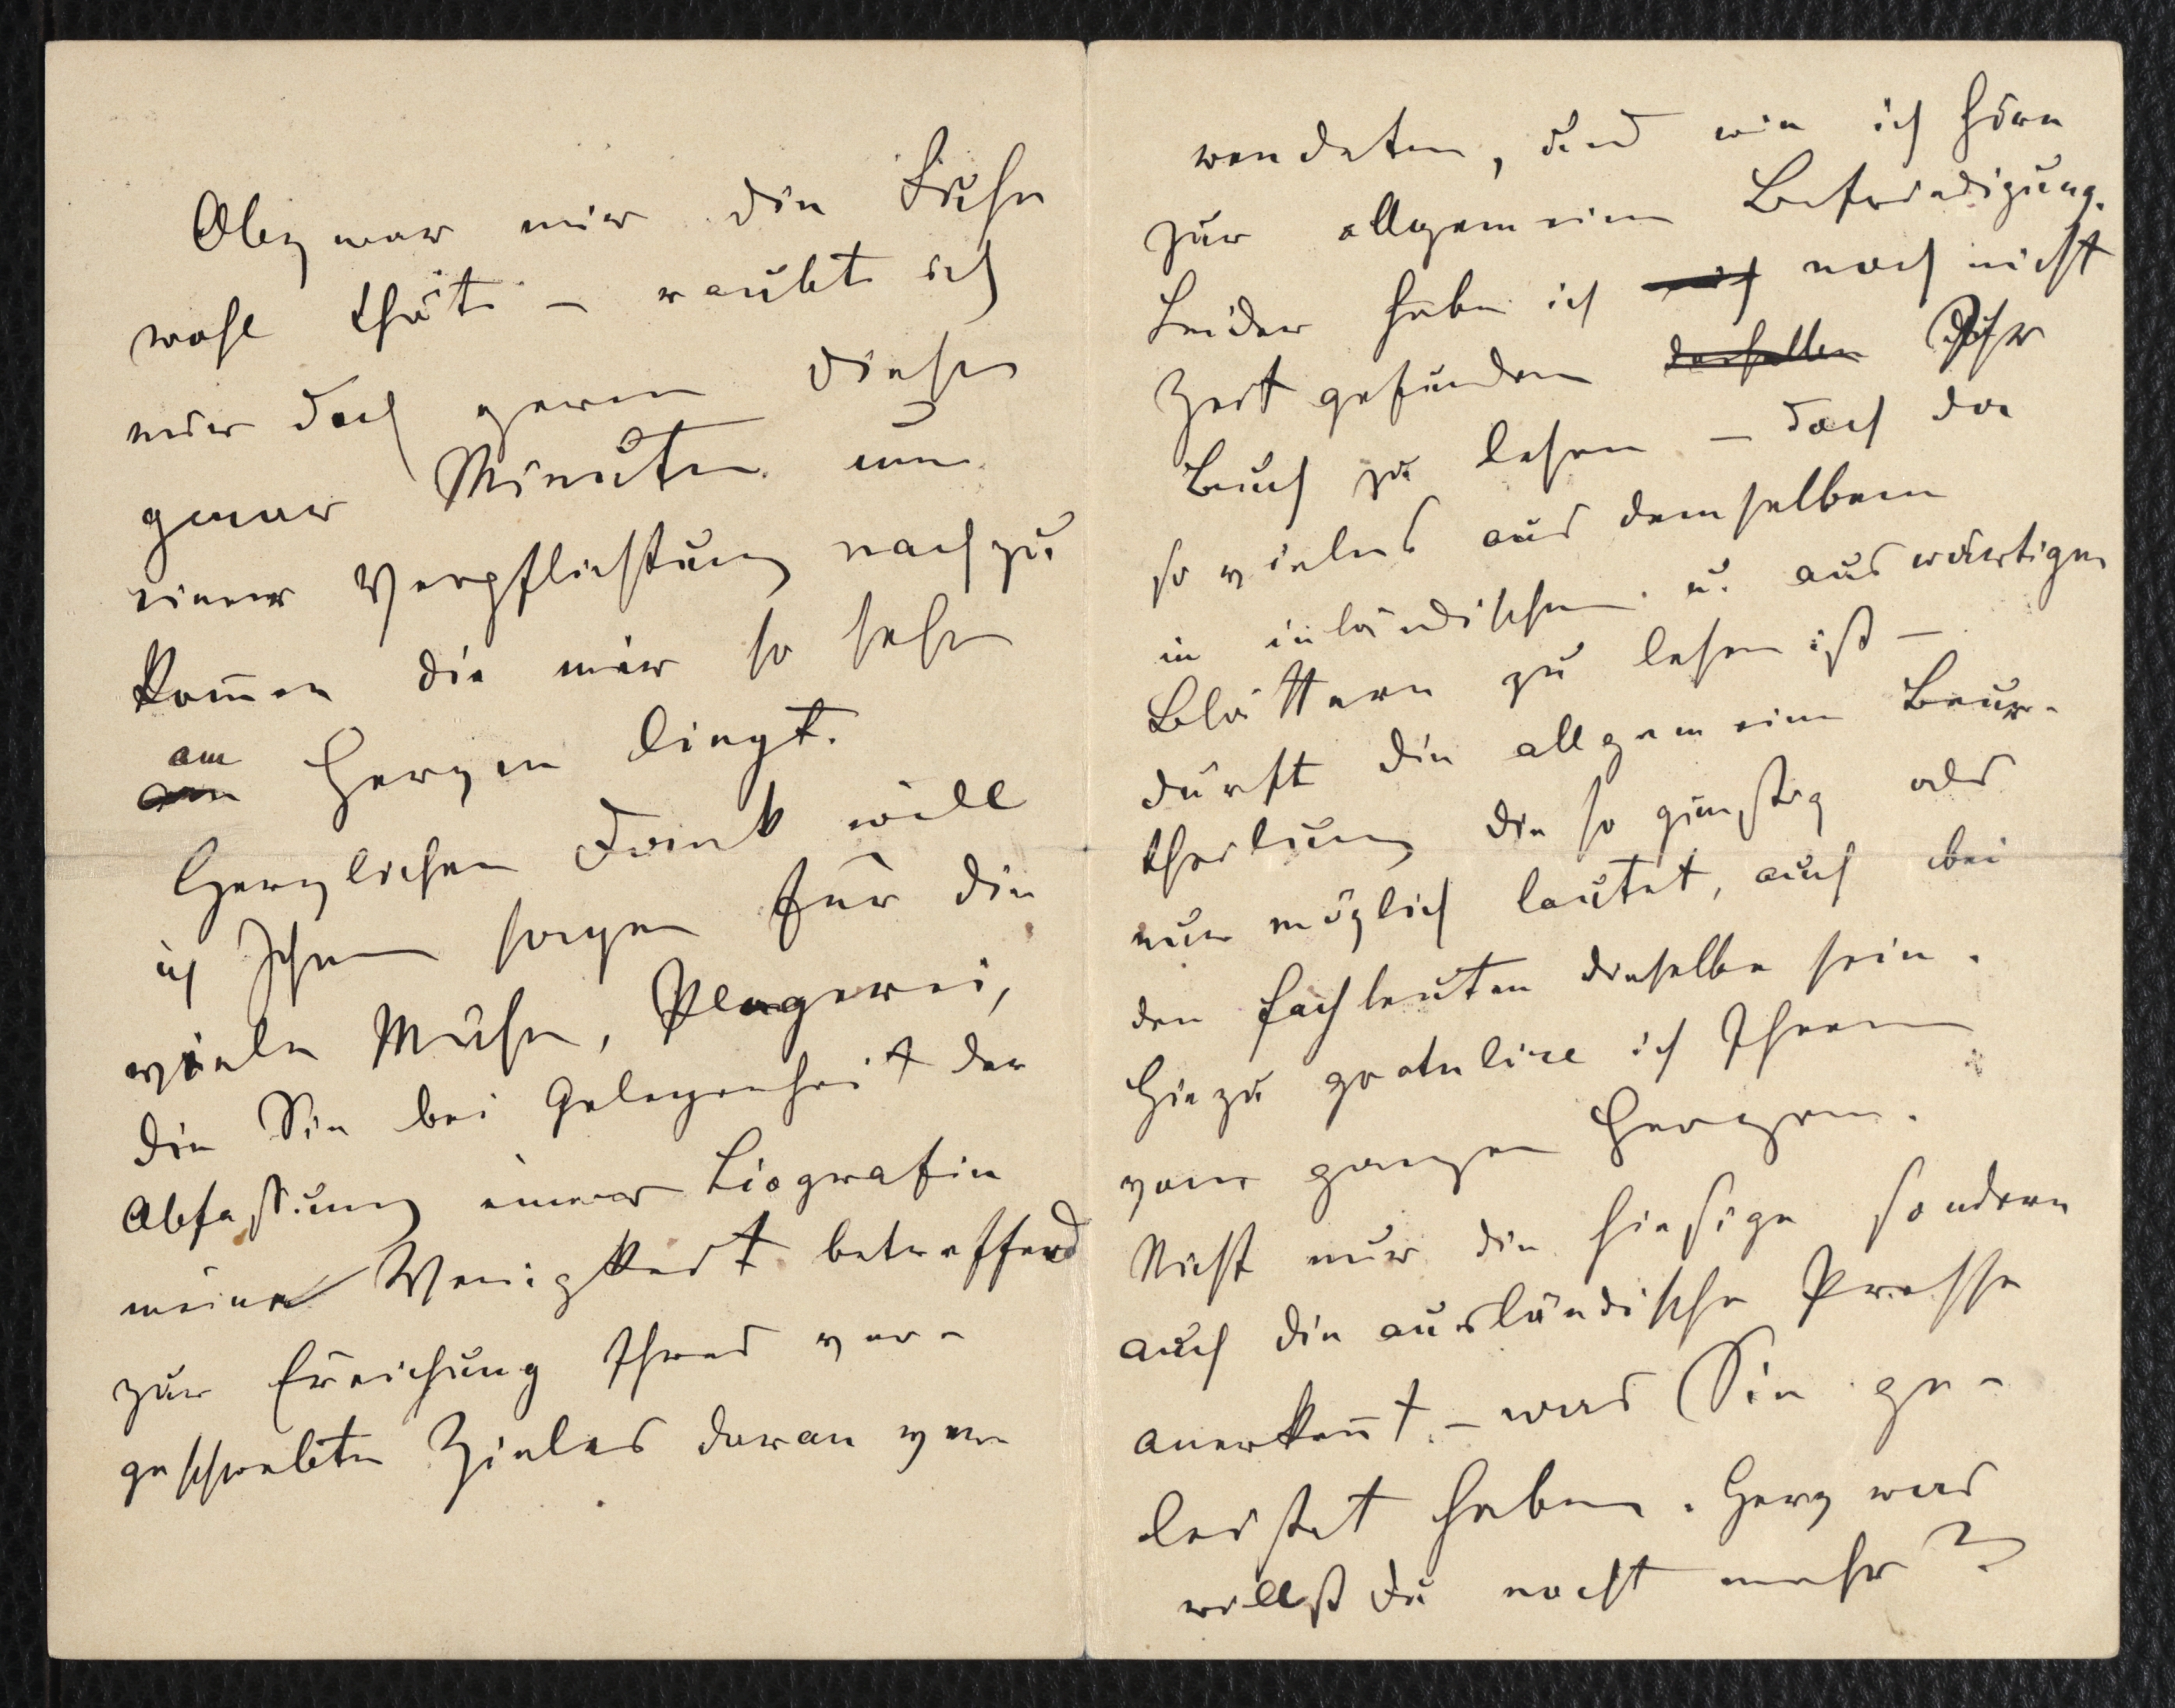 Obzwar mir die Ruhe
wohl thäte – raubte ich
mir doch gerne diese
genau Minuten um
einer Verpflichtung nachzu
kom̄en die mir so sehr
am
Herzen liegt.
Herzlichen Dank will
ich Ihnen sagen für die
viele Mühe, Plagerei,
die Sie bei Gelegenheit der
Abfassung einer Biografie
meine Wenigkeit betreffend
zur Ereichung Ihres vor-
geschwebten Zieles daran ver-
wendeten, und wie ich höre
zur allgemeinen Befriedigung.
Leider habe ich noch nicht
Zeit gefunden Ihr
Buch zu lesen – doch da
so vieles aus demselben
in inländischen u. auswärtigen
Blättern zu lesen ist –
dürft die allgemeine Beur-
theilung die so günstig als
nur möglich lautet, auch bei
den Fachleuten dieselbe sein.
Hiezu gratulire ich Ihnen
vom ganzen Herzen.
Nicht nur die hiesige sondern
auch die ausländische Presse
anerken̄t – was Sie ge-
leistet haben. Herz was
willst du noch mehr?